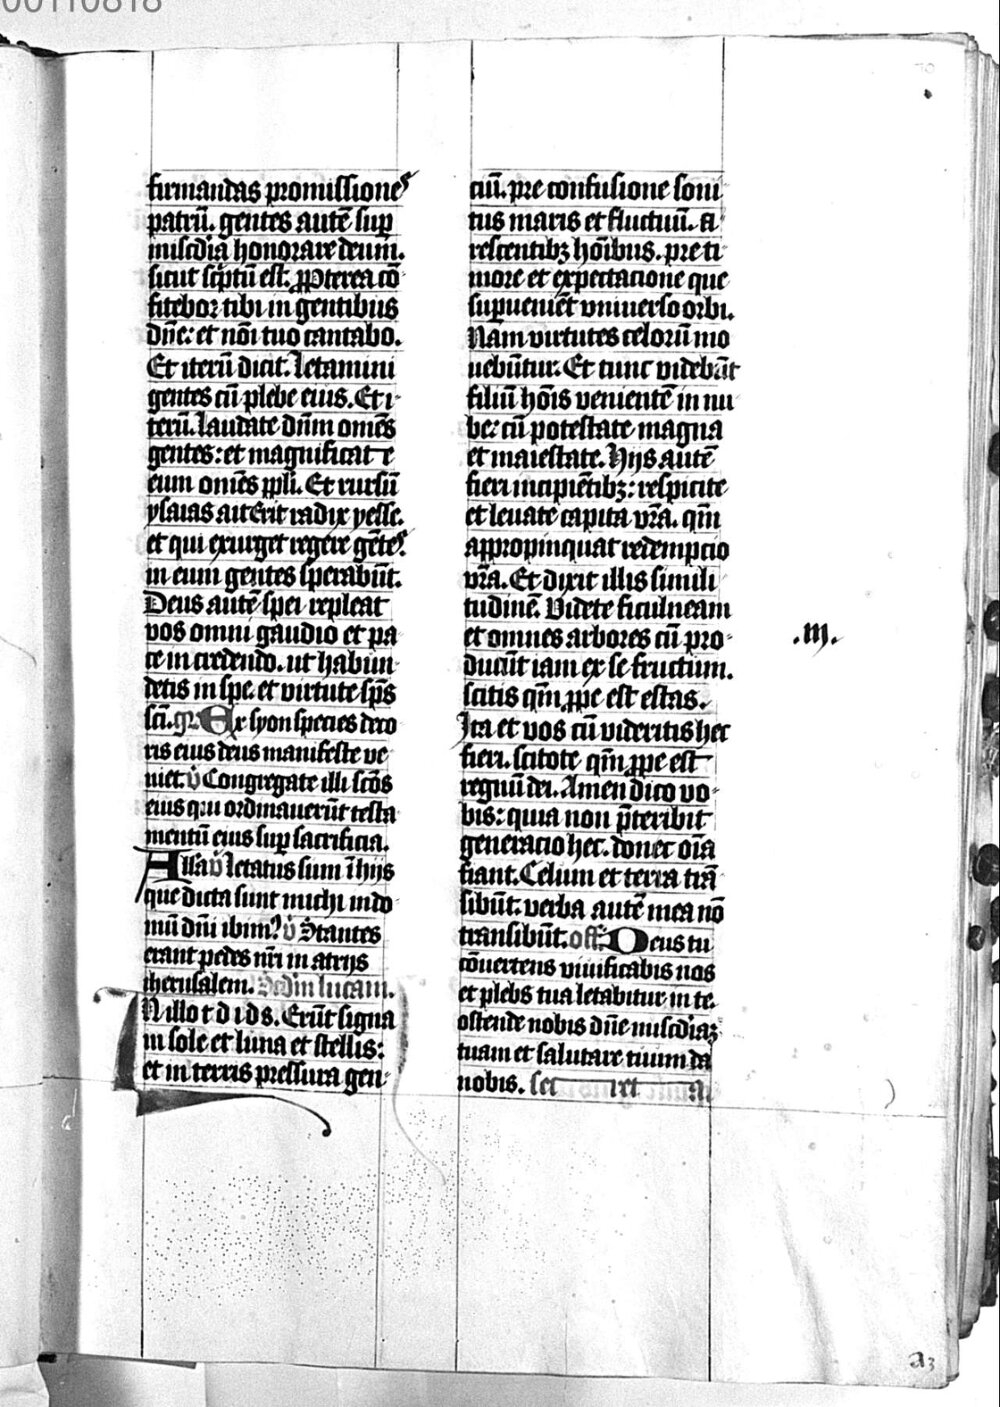 00110818
firmandas promissiones
patrū. gentes autē sup
misc̄dia honorare deum.
sicut sc̄ptū est. ꝓpterea cō
fitebor tibi in gentibus
dn̄e: et nōi tuo cantabo.
Et iterū dicit. Letamini
gentes cū plebe eius. Et i-
terū. Laudate dn̄m omēs
gentes: et magnificate
eum omēs ppli. Et rursū
ysaias ait Erit radix yesse.
et qui exurget regere gētes.
in eum gentes sperabūt.
Deus autē spei repleat
vos omni gaudio et pa
ce in credendo. ut habun
detis in spe et virtute sp̄s
sc̄i. gr. Ex syon species deco
ris eius deus manifeste ve
niet. v̊ Congregate illi sc̄os
eius qui ordinauerūt testa
mentū eius sup sacrificia.
Alla v̊ Letatus sum ī hijs
que dicta sunt michi in do
mū dn̄i ibim? v̊ Stantes
erant pedes nr̄i in atrijs
iherusalem. Scd̄m lucam.
N illo t d i d s. Erūt signa
in sole et luna et stellis:
et in terris pressura gen-
ciū. pre confusione soni
tus maris et fluctuū. a
rescentibꝫ hōibus. pre ti
more et expectacione que
supueniēt vniuerso orbi.
Nam virtutes celorū mo
uebūtur. Et tunc videbūt
filiū hōis venientē in nu
be: cū potestate magna
et maiestate. Hijs autē
fieri incipiētibꝫ: respicite
et leuate capita vr̄a. qm̄
appropinquat redempcio
vr̄a. Et dixit illis simili
tudinē. Videte ficulneam
et omnes arbores cū pro-
ducūt iam ex se fructum.
scitis qm̄ ꝓpe est estas.
Ita et vos cū videritis hec
fieri. scitote qm̄ ꝓpe est
regnū dei. Amen dico vo-
bis: quia non p̄teribit
generacio hec. donec oīa
fiant. Celum et terra trā
sibūt. verba autē mea nō
transibūt. off. Deus tu
cōuertens viuificabis nos
et plebs tua letabitur in te.
ostende nobis dn̄e misc̄diaꝫ
tuam et salutare tuum da
nobis. sec
.m.
a3